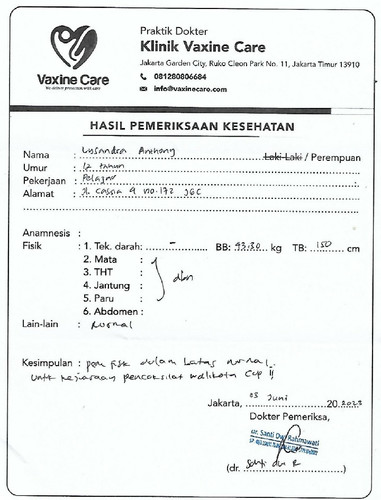 Praktik Dokter
Klinik Vaxine Care
Jakarta Garden City, Ruko Cleon Park No. 11, Jakarta Timur 13910
081280806684
info@vaxinecare.com
Vaxine Care
HASIL PEMERIKSAAN KESEHATAN
Nama : Lysandra Anthony Laki-Laki / Perempuan
Umur : 12 tahun
Pekerjaan : Pelajar
Alamat : Jl. Cassia 9 no. 173 JGC
Anamnesis :
Fisik : 1. Tek. darah: - BB: 43.30 kg TB: 150 cm
2. Mata :
3. THT :
4. Jantung : dbn
5. Paru :
6. Abdomen:
Lain-lain : Normal
Kesimpulan : pem fisik dalam batas normal.
Untk kejuaraan pencak silat walikota Cup II
Jakarta, 03 Juni 2022
Dokter Pemeriksa,
dr. Santi Dwi Rahmawati
(dr. Santi Dwi R)